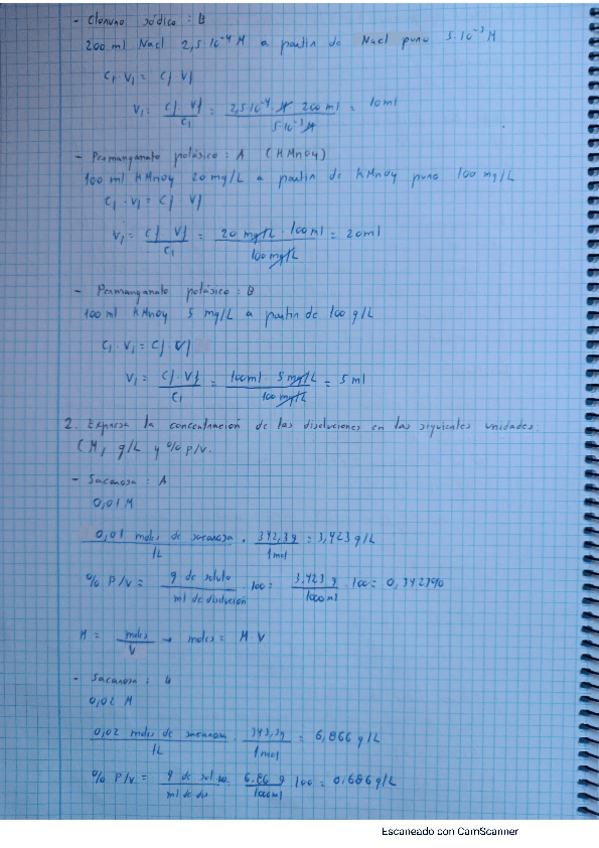 - Cloruro sódico : B
200 ml NaCl 2,5·10⁻⁴ M a partir de NaCl puro 5·10⁻³ M
C₁ · V₁ = Cf Vf
V₁ = Cf · Vf / C₁ = 2,5·10⁻⁴ · M · 200 ml / 5·10⁻³ M = 10 ml
- Permanganato potásico : A (KMnO4)
100 ml KMnO4 20 mg/L a partir de KMnO4 puro 100 mg/L
C₁ · V₁ = Cf Vf
V₁ = Cf Vf / C₁ = 20 mg/L · 100 ml / 100 mg/L = 20 ml
- Permanganato potásico : B
100 ml KMnO4 5 mg/L a partir de 100 g/L
C₁ · V₁ = Cf · Vf
V₁ = Cf · Vf / C₁ = 100 ml · 5 mg/L / 100 mg/L = 5 ml
2. Expresa la concentración de las disoluciones en las siguientes unidades:
(M, g/L y % p/v.
- Sacarosa : A
0,01 M
0,01 moles de sacarosa / 1L · 342,3 g / 1 mol = 3,423 g/L
% P/V = g de soluto / ml de disolución · 100 = 3,423 g / 1000 ml · 100 = 0,3423%
M = moles / V → moles = M · V
- Sacarosa :
0,02 M
0,02 moles de sacarosa / 1L · 343,3g / 1 mol = 6,866 g/L
% P/V = g de soluto / ml de dis · 6,86 g / 1000 ml 100 = 0,686 g/L
Escaneado con CamScanner